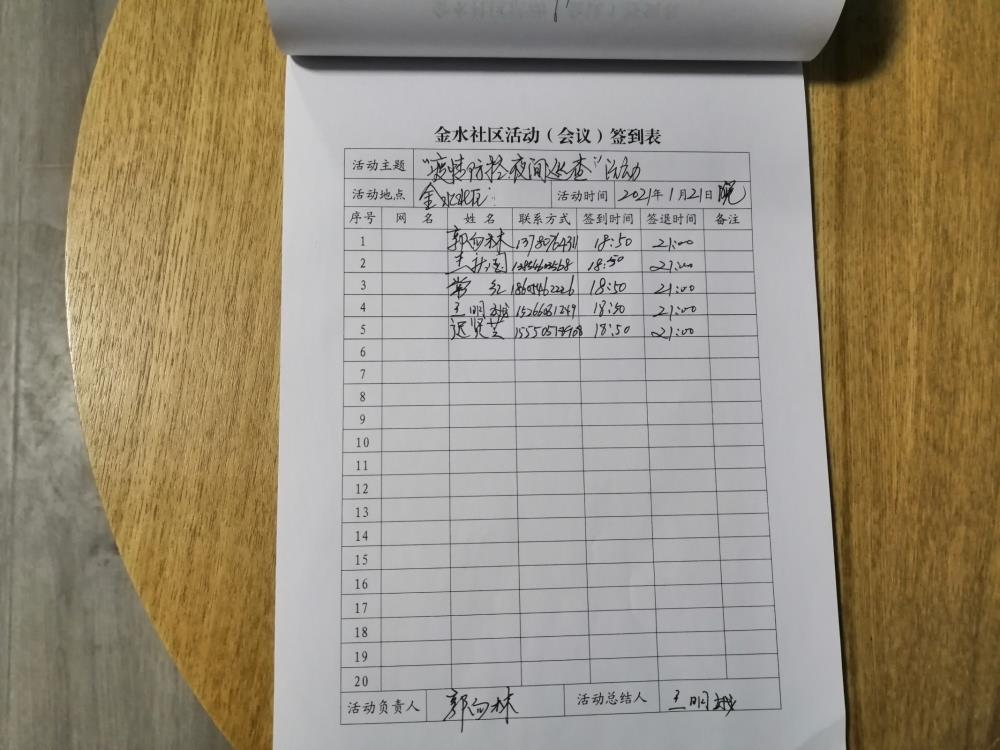 金水社区活动（会议）签到表
活动主题 "疫情防控夜间巡查"活动
活动地点 金水社区 活动时间 2021年1月21日晚
序号 网 名 姓 名 联系方式 签到时间 签退时间 备注
1 郭向林 18:50 21:00
2 18:50 21:00
3 常红 18605462226 18:50 21:00
4 王明 18:50 21:00
5 迟贤芝 18:50 21:00
6
7
8
9
10
11
12
13
14
15
16
17
18
19
20
活动负责人 郭向林 活动总结人 王明